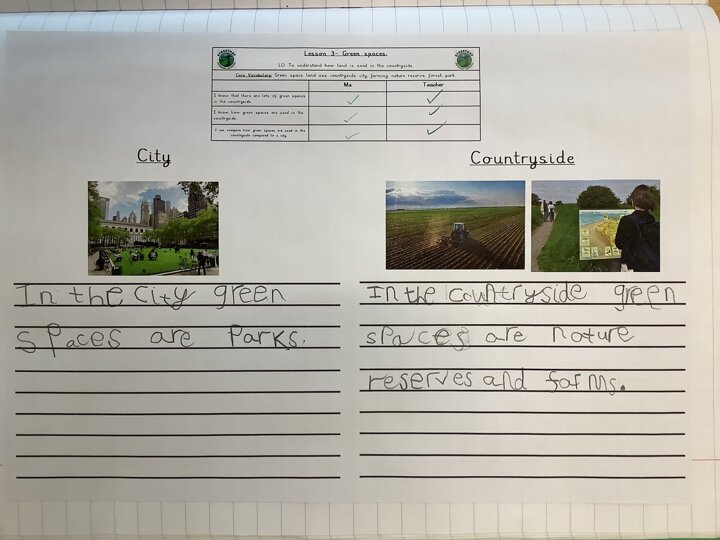 Lesson 3- Green spaces.
LO: To understand how land is used in the countryside
Core Vocabulary: Green space, land use, countryside, city, farming, nature reserve, forest, park.
Me Teacher
I know that there are lots of green spaces
in the countryside.
I know how green spaces are used in the
countryside.
I can compare how green spaces are used in the
countryside compared to a city.
City
In the City green
spaces are Parks.
Countryside
In the countryside green
spaces are nature
reserves and farms.